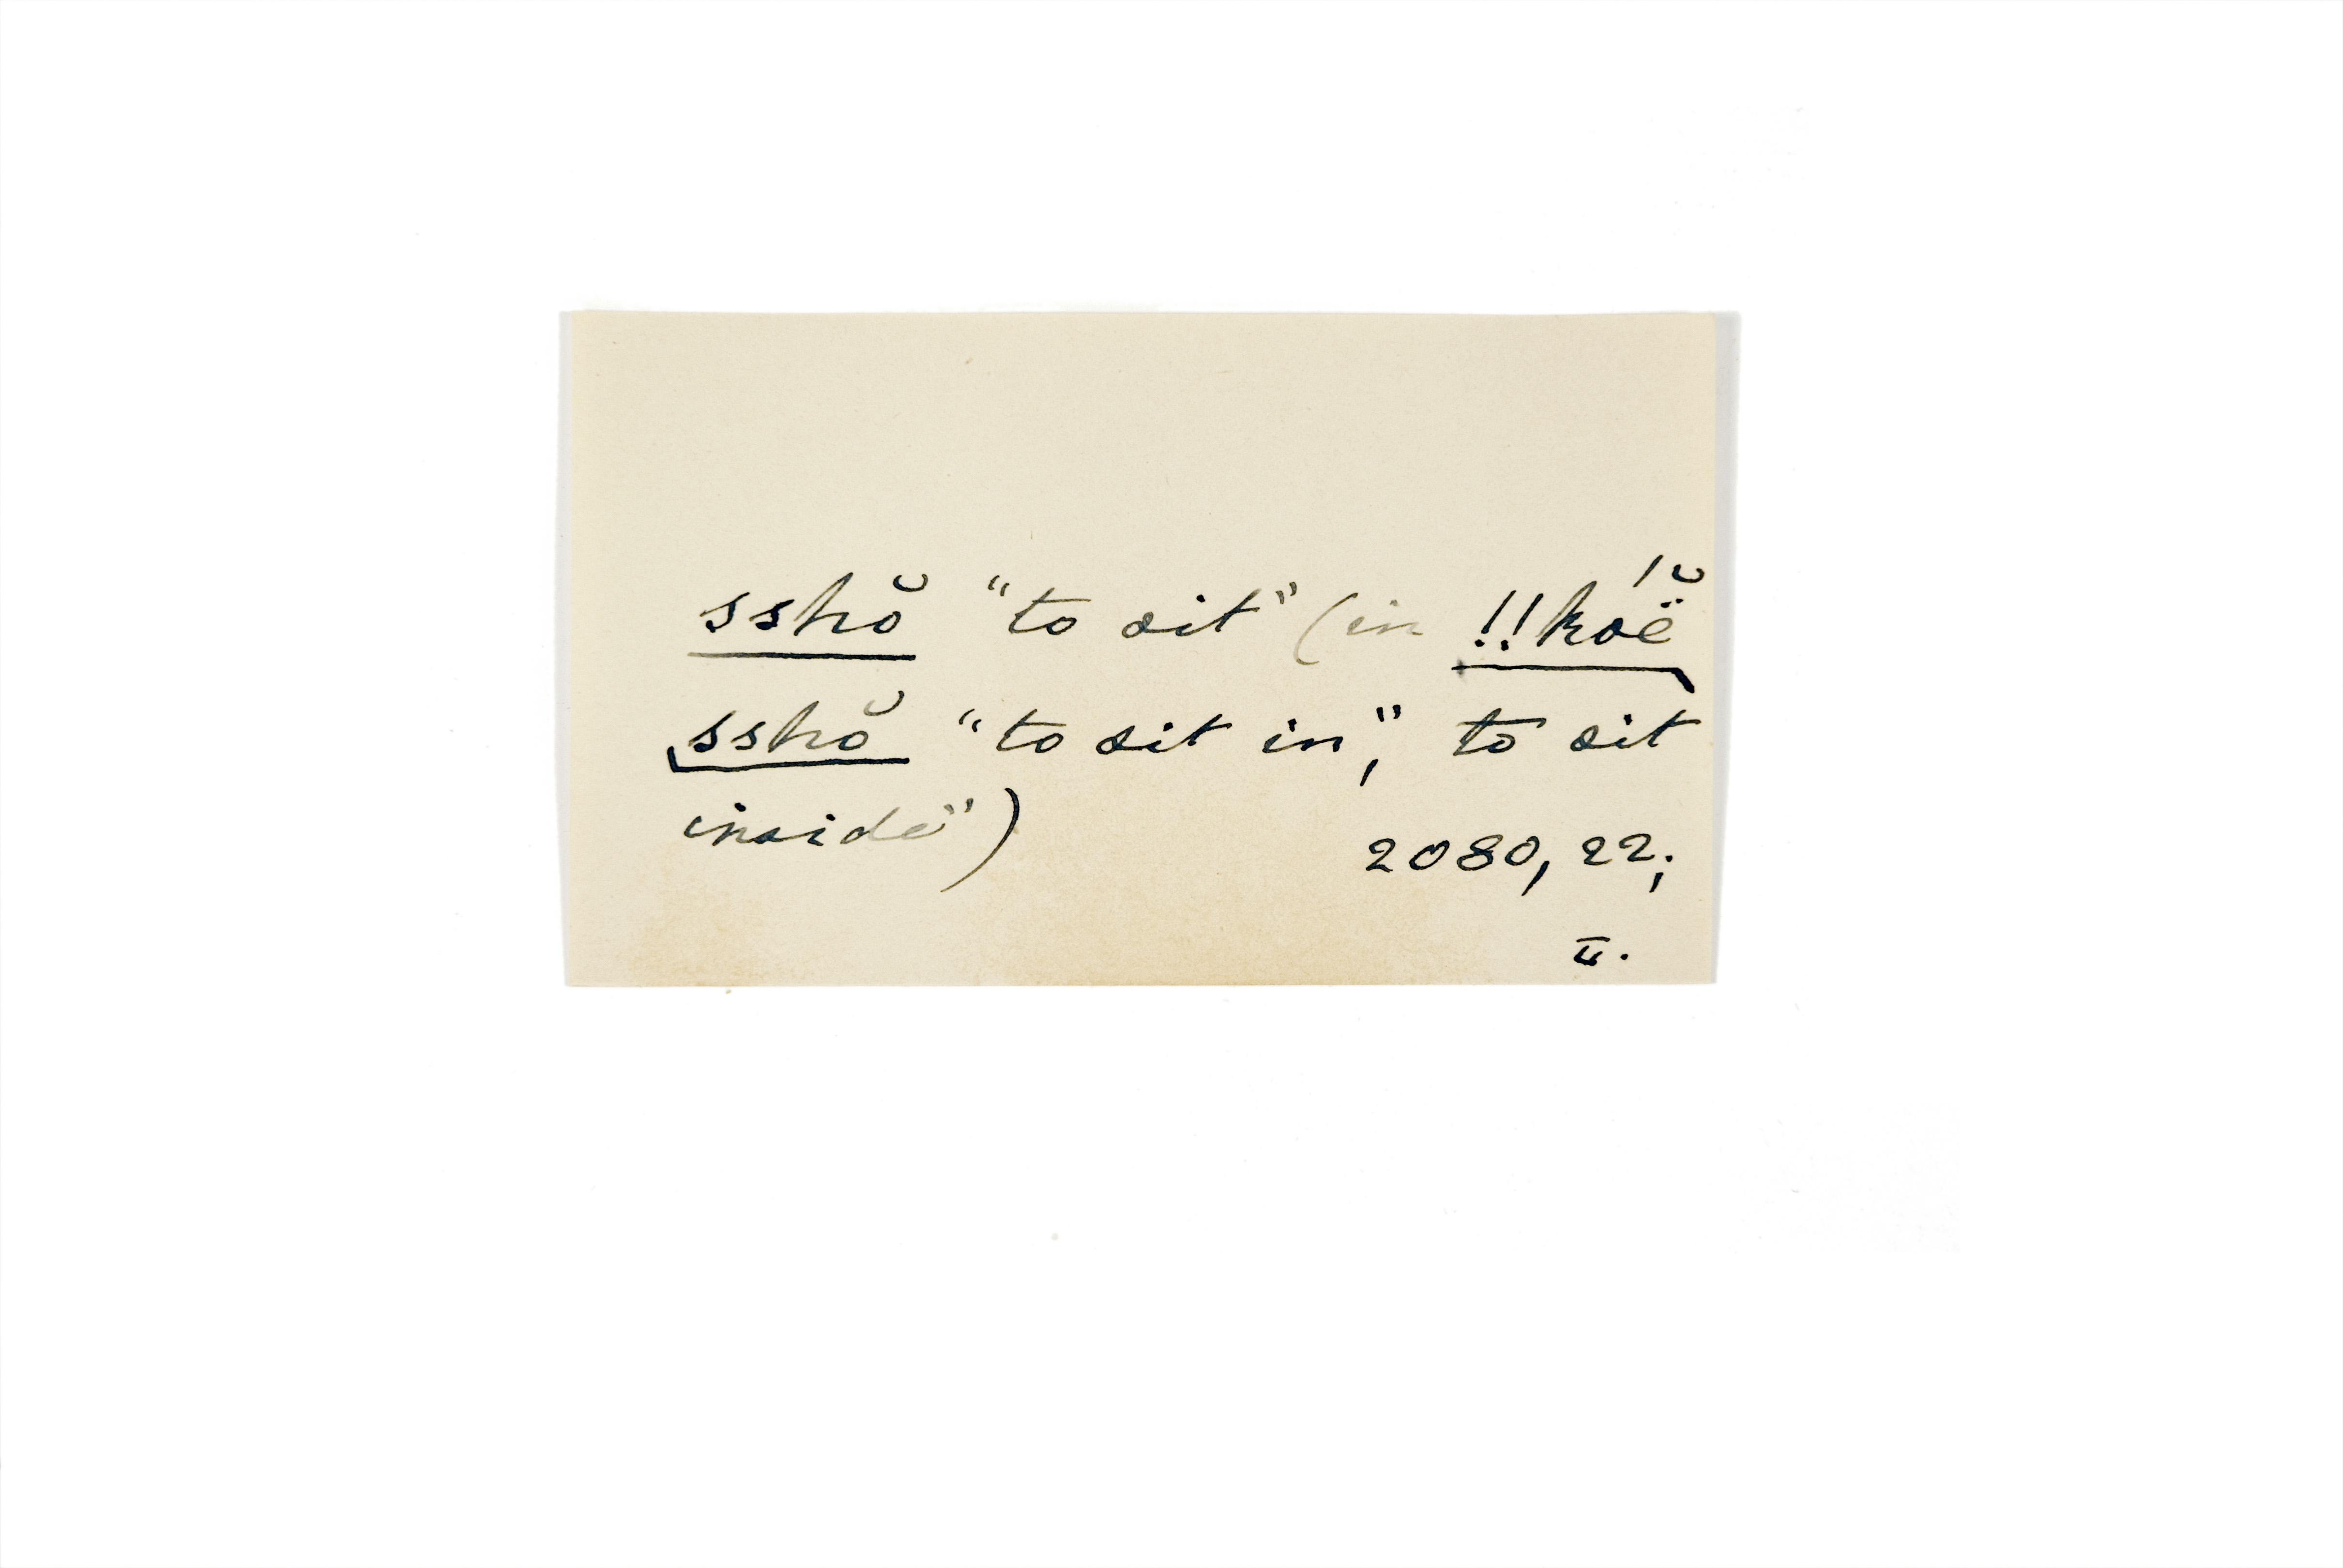 sshŏ "to sit" (in !!kóë̆
sshŏ "to sit in", to sit
inside")
2080, 22;
II.